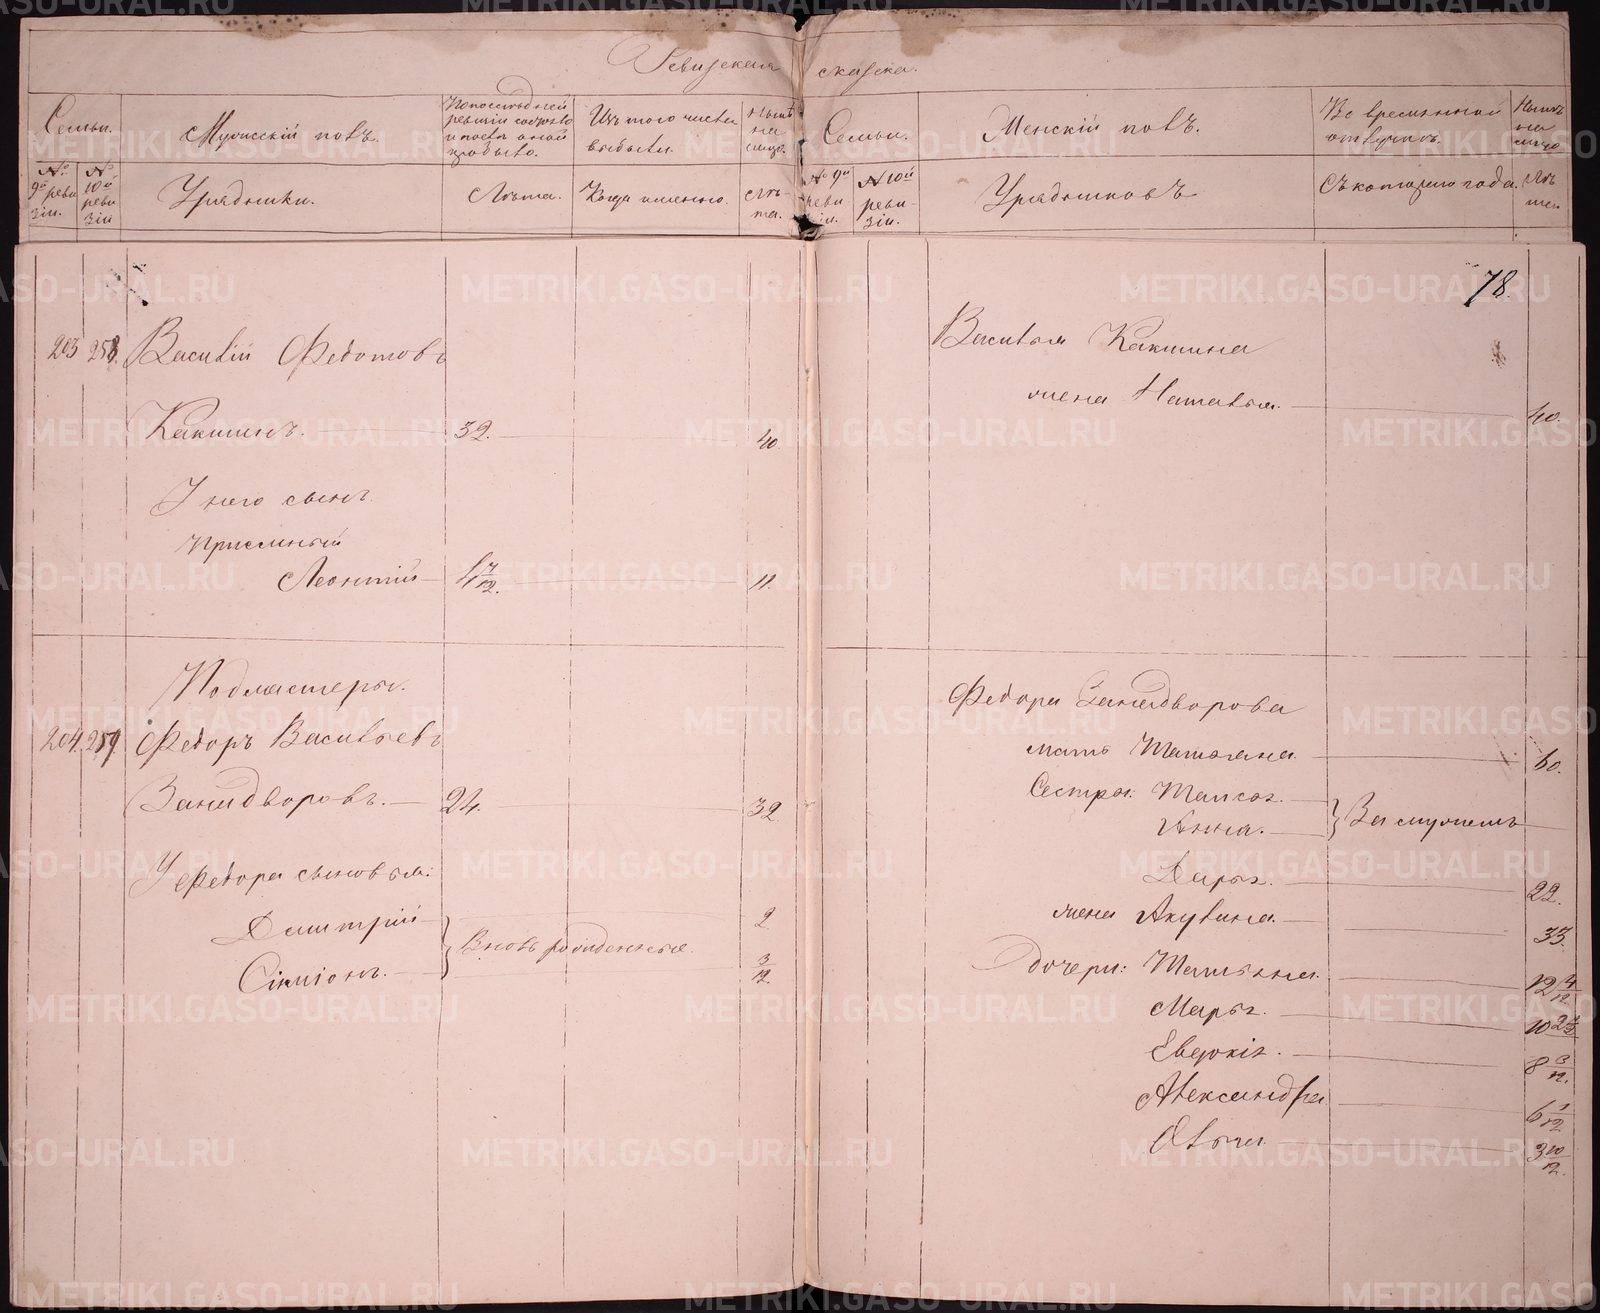 Ревизская сказка.
Семьи.
Мужескій полъ.
По последней ревизіи состояло и после оной прибыло.
Изъ того числа выбыли.
Ныне на лицо.
№ 9й ревизіи.
№ 10й ревизіи
Урядники.
Лѣта.
Когда именно.
Лѣта.
203 258. Василій Федотовъ
Какшинъ. 32. 40.
У него сынъ
пріемный
Леонтій 4 7/12. 11.
Подмастеры.
204. 259. Федоръ Васильевъ
Занидворовъ. 24. 32
У Федора сыновья:
Дмитрій 2
Вновь рожденные.
Сімміонъ. 3/12.
78.
Семьи.
Женскій полъ.
Во временной отлучкѣ.
Ныне на лицо
№ 9й ревизіи.
№ 10й ревизіи.
Урядниковъ
Съ котораго года.
Лѣта
Василья Какшина
жена Наталья. 40.
Федора Занидворова
мать Татьяна. 60.
Сестры: Таисья.
Анна. Въ замужемъ
Дарья. 22.
жена Акулина. 33.
дочери: Татьяна. 12 4/12
Марья. 10
Евдокія. 8 3/12.
Александра 6 1/12
Ольга 3 10/12.
METRIKI.GASO-URAL.RU